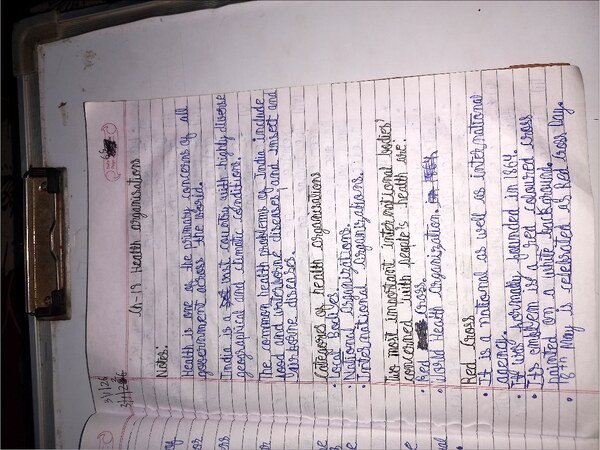 3/1/26
Ch-19 Health organisations
Notes:
Health is one of the primary concerns of all
government across the world.
India is vast country with highly diverse
geographical and climatic conditions.
The common health problems of India include
food and waterborne diseases, and insect and
airborne diseases.
Categories of health organisations
• Local bodies
• National organizations.
• International organizations.
Two most important international bodies'
concerned with people's health are:
• Red Cross.
• World Health Organization.
Red Cross
• It is a national as well as international
agency.
• It was formally founded in 1864.
• Its emblem is a red coloured cross
painted on a white background.
• 8th May is celebrated as Red Cross Day.
of
or